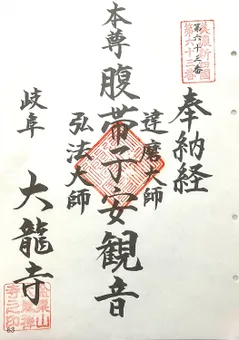 第六十三番
奉納経
達磨大師
本尊腹帯子安観音
弘法大師
岐阜
大龍寺
53